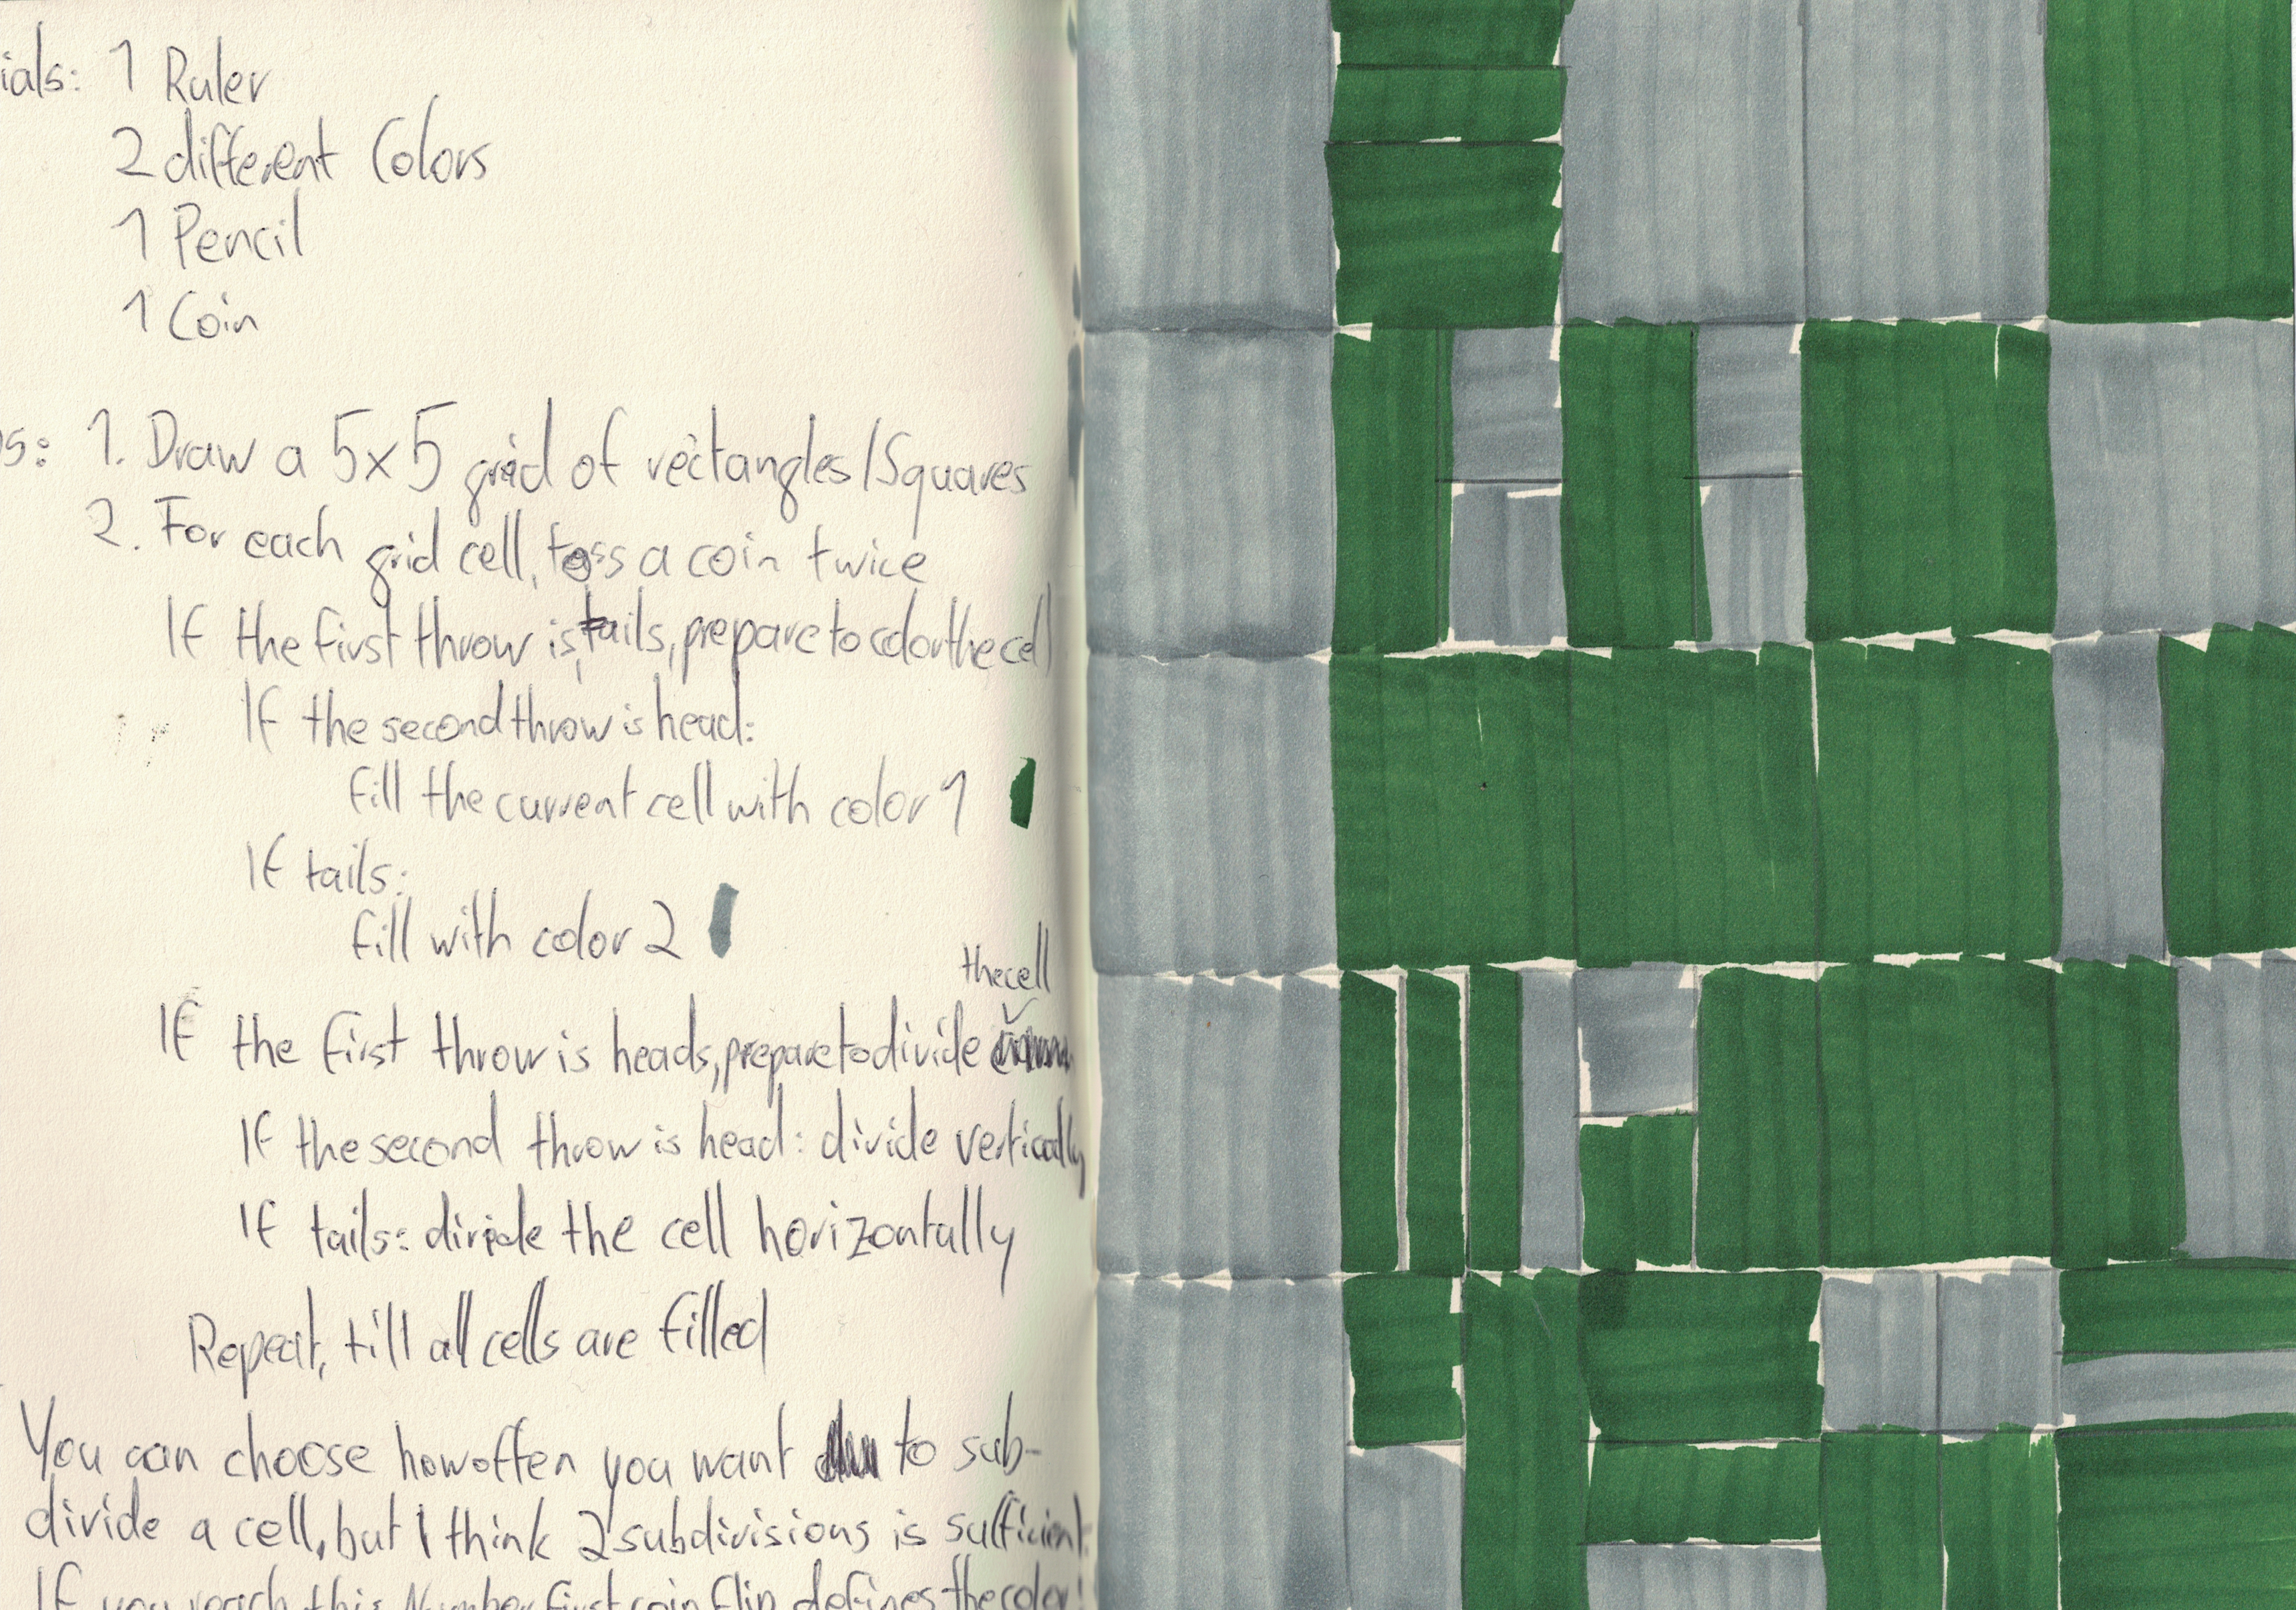 ials: 1 Ruler
2 different Colors
1 Pencil
1 Coin
s: 1. Draw a 5x5 grid of rectangles/Squares
2. For each grid cell, toss a coin twice
If the first throw is tails, prepare to color the cell
If the second throw is head:
fill the current cell with color 1
If tails:
fill with color 2
the cell
If the first throw is heads, prepare to divide
If the second throw is head: divide vertically
If tails: divide the cell horizontally
Repeat, till all cells are filled
You can choose how often you want to sub-
divide a cell, but I think 2 subdivisions is sufficient.
If you reach this Number first coin flip defines the color!